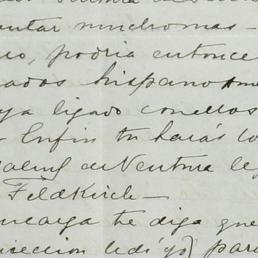 untar muchomas -
uo, podria entonce
ados hispano Am
ya ligado conellos
- Enfin tu harás lo
Salud de Ventura le
Feldkirch -
ncarga te diga que
ireccion ledi yo) para